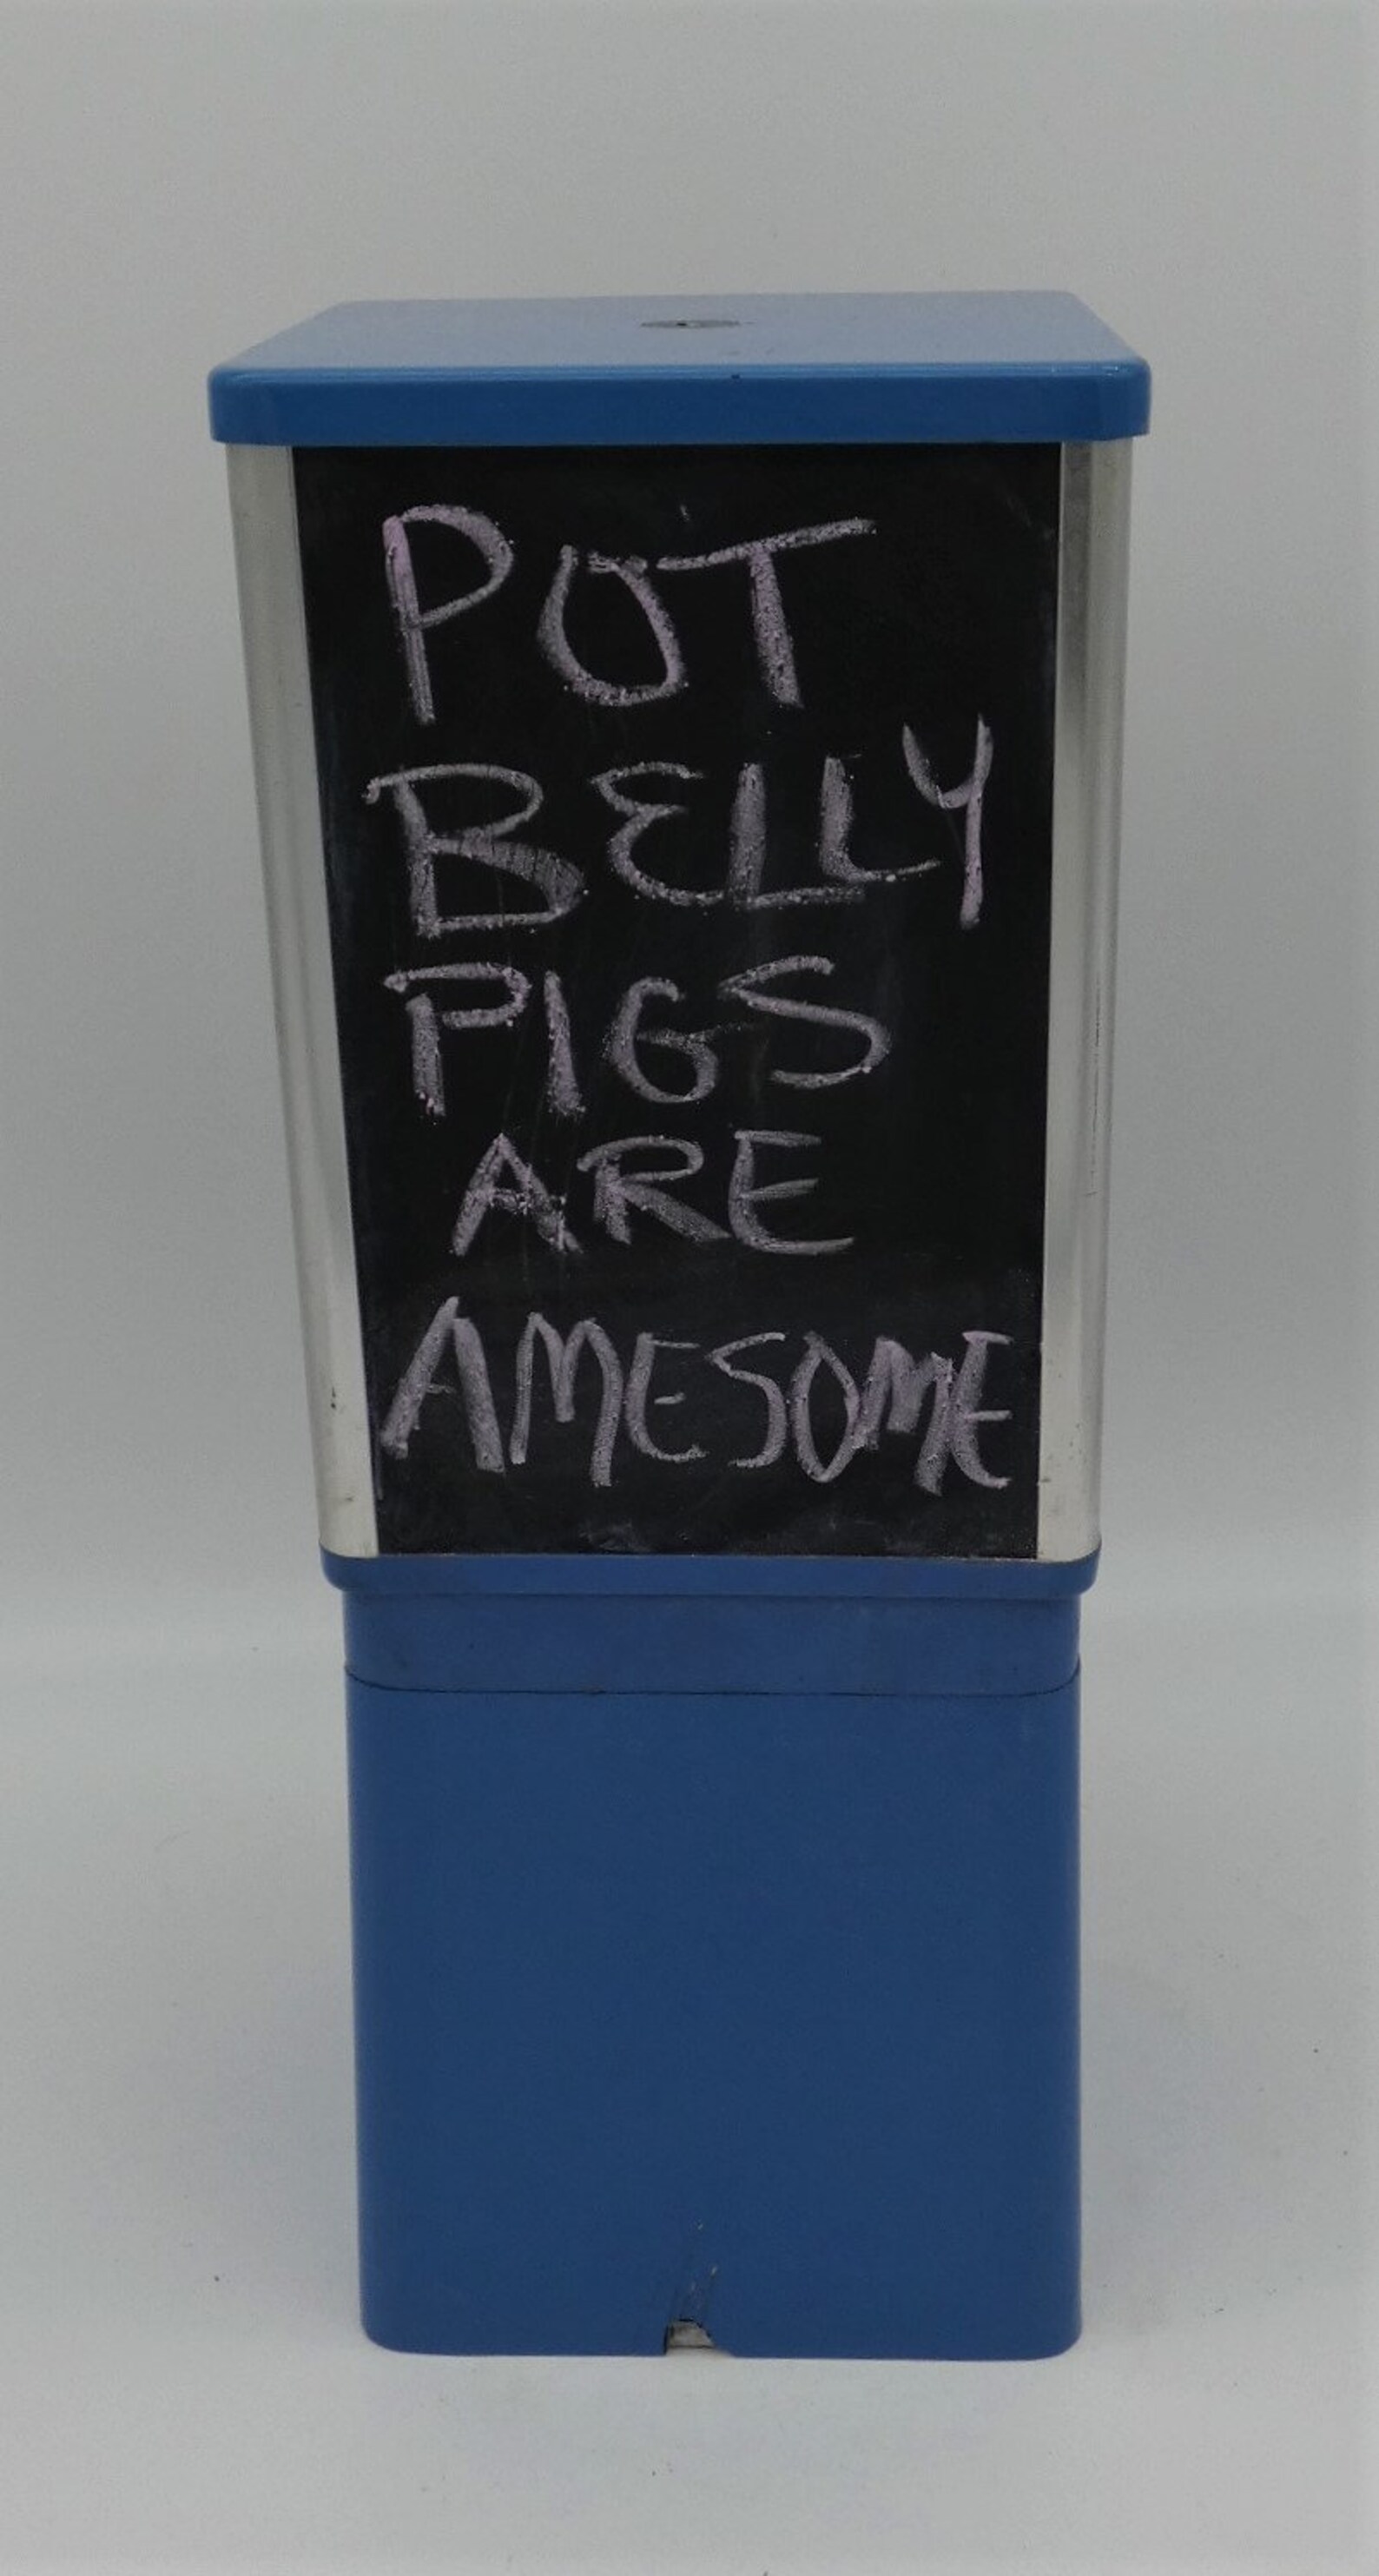 POT
BELLY
PIGS
ARE
AMESOME